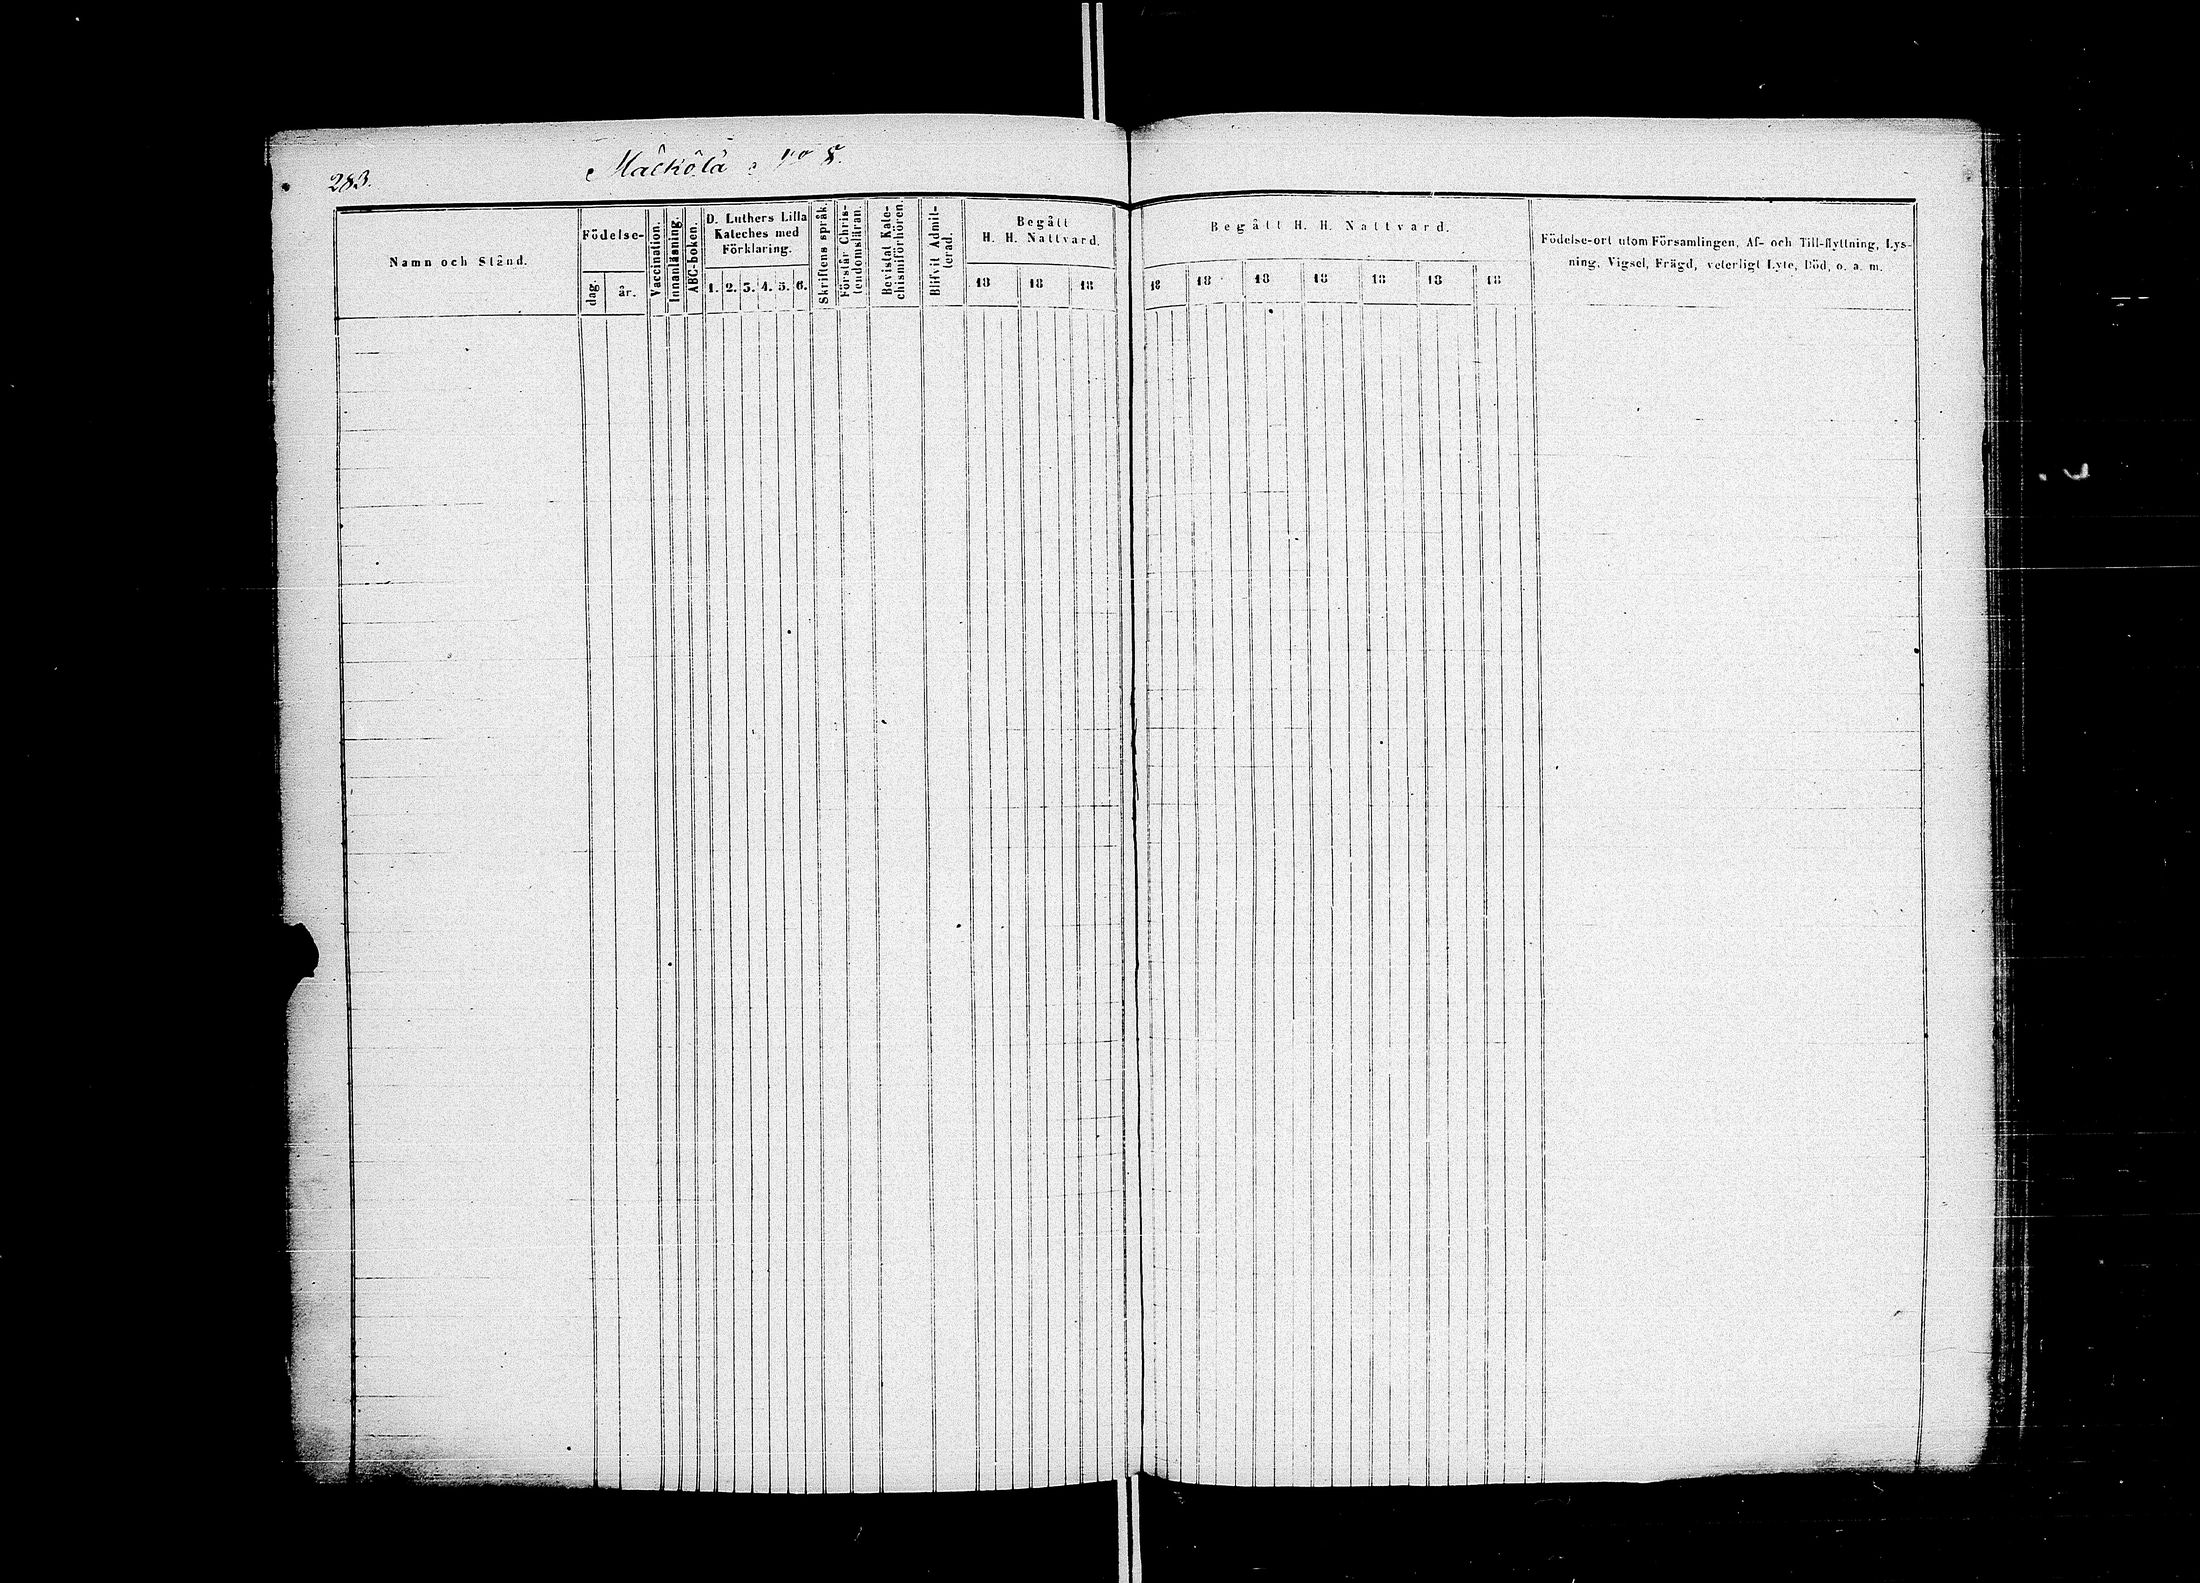 283.
Mäckölä No 8.
Namn och Stånd.
Födelse-
dag.
år.
Vaccination.
Innanläsning.
ABC-boken.
D. Luthers Lilla
Kateches med
Förklaring.
1. 2. 3. 4. 5. 6.
Skriftens språk.
Förstår Chris-
tendomsläran.
Bevistat Kate-
chismiförhören.
Blifvit Admit-
terad.
Begått
H. H. Nattvard.
18 18 18
Begått H. H. Nattvard.
18 18 18 18 18 18 18
Födelse-ort utom Församlingen, Af- och Till-flyttning, Lys-
ning, Vigsel, Frägd, veterligt Lyte, Död, o. a. m.